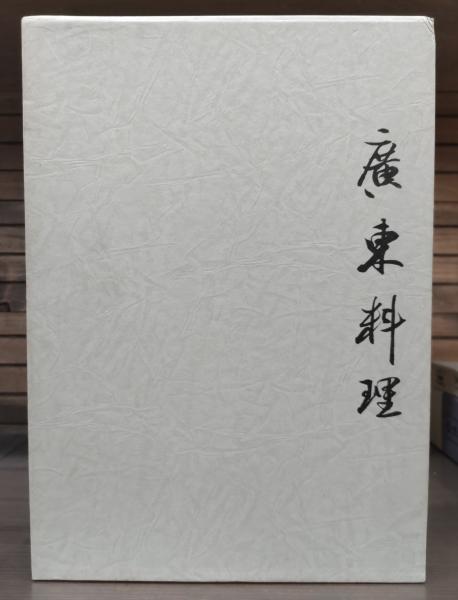 廣東料理